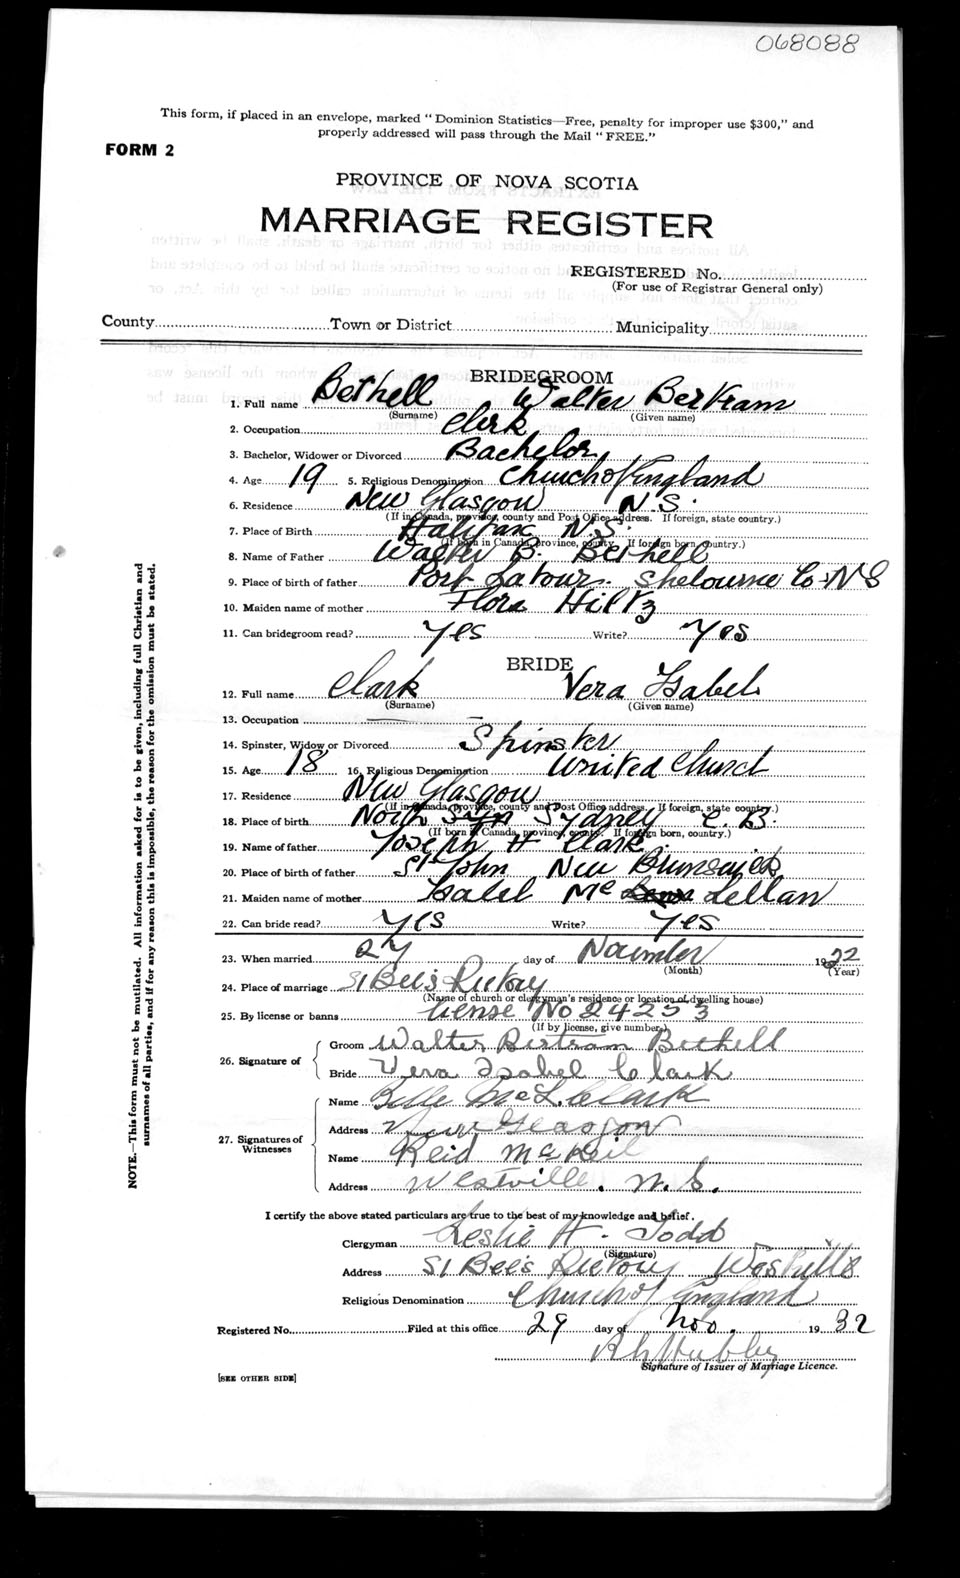 068088
This form, if placed in an envelope, marked "Dominion Statistics—Free, penalty for improper use $300," and
properly addressed will pass through the Mail "FREE."
FORM 2
PROVINCE OF NOVA SCOTIA
MARRIAGE REGISTER
REGISTERED No.
(For use of Registrar General only)
County Town or District Municipality
BRIDEGROOM
1. Full name Bethell Walter Bertram
(Surname) (Given name)
2. Occupation Clerk
3. Bachelor, Widower or Divorced Bachelor
4. Age 19 5. Religious Denomination Church of England
6. Residence New Glasgow N.S.
(If in Canada, province, county and Post Office address. If foreign, state country.)
7. Place of Birth Halifax N.S.
(If born in Canada, province, county. If foreign born, country.)
8. Name of Father Walter B. Bethell
9. Place of birth of father Port Latour. Shelourne Co N S
10. Maiden name of mother Flora Hiltz
11. Can bridegroom read? Yes Write? Yes
BRIDE
12. Full name Clark Vera Isabel
(Surname) (Given name)
13. Occupation —
14. Spinster, Widow or Divorced Spinster
15. Age 18 16. Religious Denomination United Church
17. Residence New Glasgow
(If in Canada, province, county and Post Office address. If foreign, state country.)
18. Place of birth North Sydney C. B.
(If born in Canada, province, county. If foreign born, country.)
19. Name of father Joseph H Clark
20. Place of birth of father St John New Brunswick
21. Maiden name of mother Isabel Mc Lellan
22. Can bride read? Yes Write? Yes
23. When married day of November 19
(Month) (Year)
24. Place of marriage St Bee's Rectory
(Name of church or clergyman's residence or location of dwelling house)
25. By license or banns License No 24253
(If by license, give number)
26. Signature of Groom Walter Bertram Bethell
Bride Vera Isabel Clark
27. Signatures of Witnesses Name Belle McL. Clark
Address New Glasgow
Name Reid
Address Westville. N.S.
I certify the above stated particulars are true to the best of my knowledge and belief.
Clergyman Leslie H. Todd
(Signature)
Address St Bee's Rectory Westville
Religious Denomination Church of England
Registered No. Filed at this office 29 day of Nov. 19 32
Signature of Issuer of Marriage Licence.
[SEE OTHER SIDE]
NOTE.—This form must not be mutilated. All information asked for is to be given, including full Christian and
surnames of all parties, and if for any reason this is impossible, the reason for the omission must be stated.